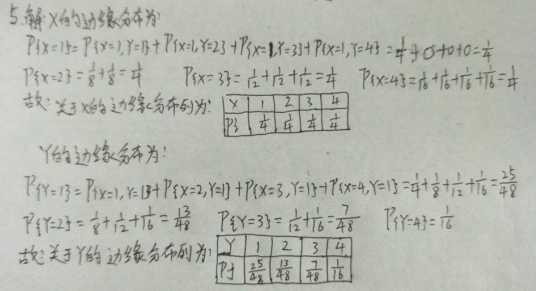 5.解 X的边缘分布为:
P{X=1}=P{X=1,Y=1}+P{X=1,Y=2}+P{X=1,Y=3}+P{X=1,Y=4}=1/4+0+0+0=1/4
P{X=2}=1/8+1/8=1/4 P{X=3}=1/12+1/12+1/12=1/4 P{X=4}=1/16+1/16+1/16+1/16=1/4
故:关于X的边缘分布列为: X 1 2 3 4
Pi 1/4 1/4 1/4 1/4
Y的边缘分布为:
P{Y=1}=P{X=1,Y=1}+P{X=2,Y=1}+P{X=3,Y=1}+P{X=4,Y=1}=1/4+1/8+1/12+1/16=25/48
P{Y=2}=1/8+1/12+1/16=13/48 P{Y=3}=1/12+1/16=7/48 P{Y=4}=1/16
故:关于Y的边缘分布列为: Y 1 2 3 4
Pj 25/48 13/48 7/48 1/16